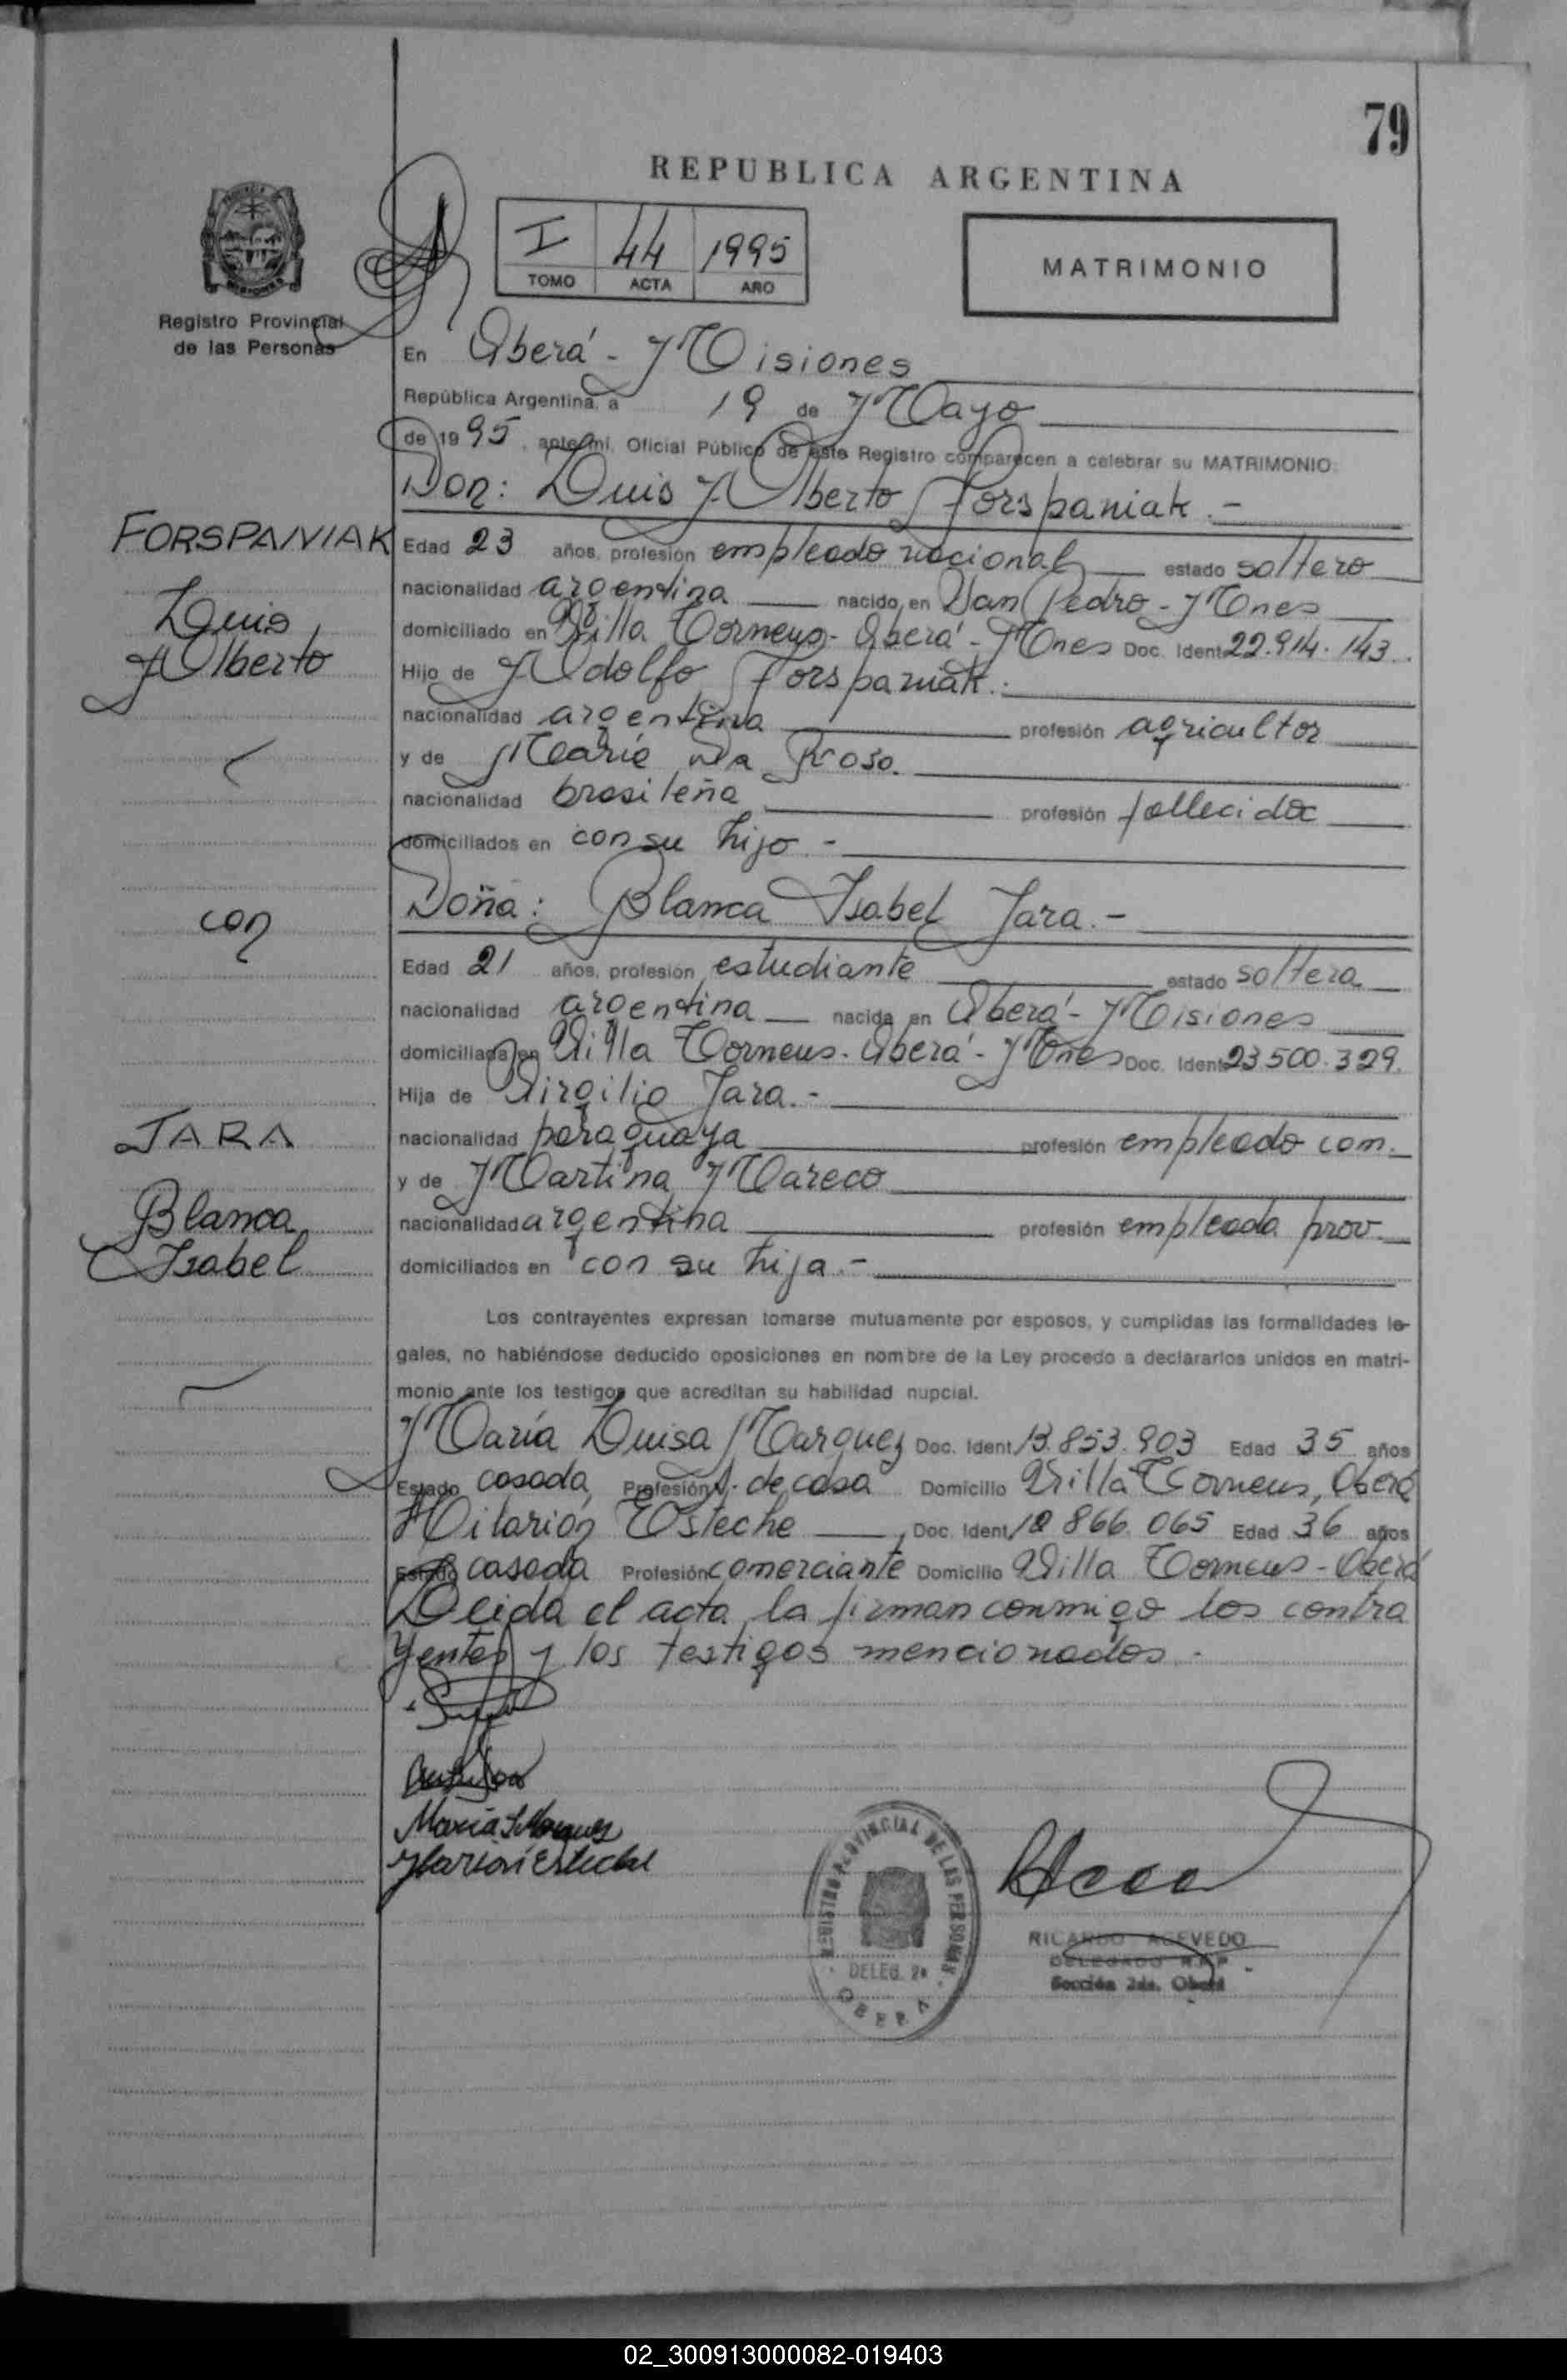 79
REPUBLICA ARGENTINA
I 44 1995
TOMO ACTA AÑO
MATRIMONIO
Registro Provincial
de las Personas
En Oberá - Misiones
República Argentina, a 19 de Mayo
de 1995, ante mí, Oficial Público de este Registro comparecen a celebrar su MATRIMONIO:
Don: Luis Alberto Forspaniak.-
FORSPANIAK
Luis
Alberto
Edad 23 años, profesión empleado nacional estado soltero
nacionalidad argentina nacido en San Pedro - Mnes
domiciliado en Villa Torneus - Oberá - Mnes Doc. Ident. 22.914.143.
Hijo de Adolfo Forspaniak.-
nacionalidad argentina profesión agricultor
y de María Da Rosa.
nacionalidad brasileña profesión fallecida
domiciliados en con su hijo.-
con
Doña: Blanca Isabel Jara.-
Edad 21 años, profesión estudiante estado soltera
nacionalidad argentina nacida en Oberá - Misiones
domiciliada en Villa Torneus - Oberá - Mnes Doc. Ident. 23.500.329.
Hija de Virgilio Jara.-
JARA
Blanca
Isabel
nacionalidad paraguaya profesión empleado com.
y de Martina Mareco
nacionalidad argentina profesión empleada prov.
domiciliados en con su hija.-
Los contrayentes expresan tomarse mutuamente por esposos, y cumplidas las formalidades le-
gales, no habiéndose deducido oposiciones en nombre de la Ley procedo a declararlos unidos en matri-
monio ante los testigos que acreditan su habilidad nupcial.
María Luisa Marquez Doc. Ident. 13.853.903 Edad 35 años
Estado casada Profesión A. de casa Domicilio Villa Torneus, Oberá
Hilarión Esteche, Doc. Ident. 866.065 Edad 36 años
Estado casada Profesión comerciante Domicilio Villa Torneus - Oberá
Leída el acta, la firman conmigo los contra
yentes y los testigos mencionados.
REGISTRO PROVINCIAL DE LAS PERSONAS
DELEG. 2a
OBERA
RICARDO ACEVEDO
DELEGADO R.P.P.
Sección 2da. Oberá
02_300913000082-019403